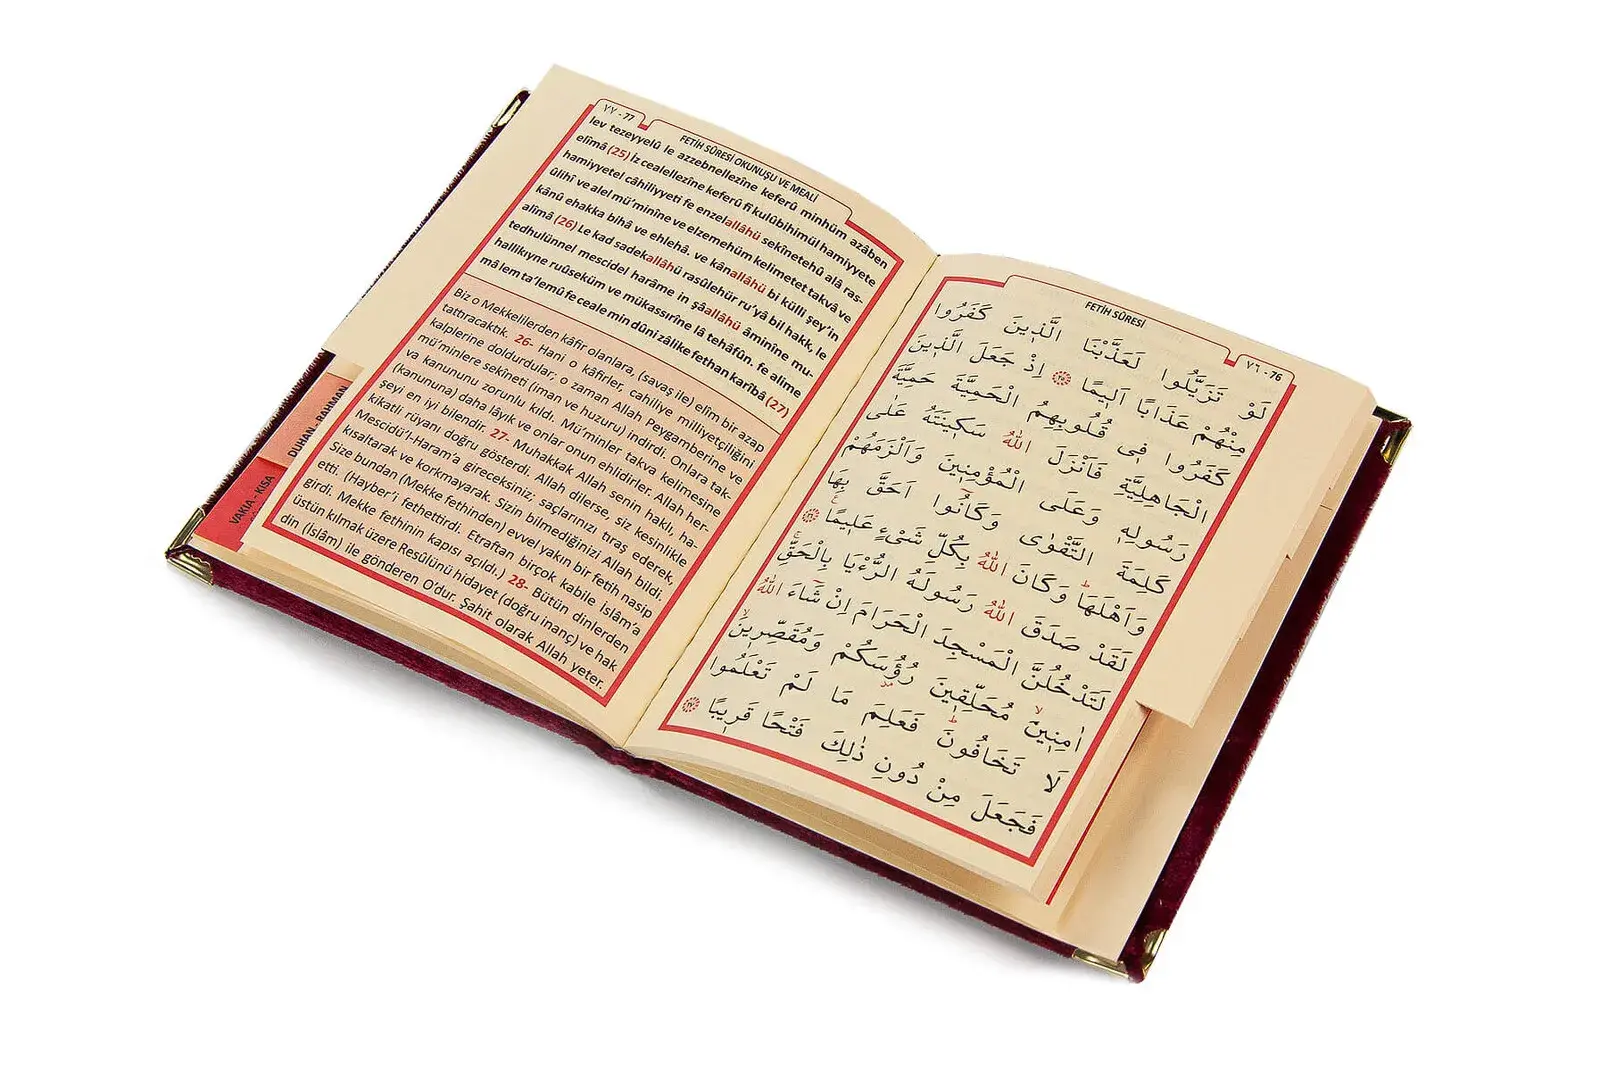 ٧٧ - 77
FETİH SÛRESİ OKUNUŞU VE MEALİ
lev tezeyyelû le azzebnellezîne keferû minhüm azâben
elîmâ (25) İz cealellezîne keferû fî kulûbihimül hamiyyete
hamiyyetel câhiliyyeti fe enzelallâhü sekînetehû alâ ras-
ûlihî ve alel mü'minîne ve elzemehüm kelimetet takvâ ve
kânû ehakka bihâ ve ehlehâ. ve kânallâhü bi külli şey'in
alîmâ (26) Le kad sadekallâhü rasûlehür ru'yâ bil hakk, le
tedhulünnel mescidel harâme in şâallâhü âminîne mu-
hallikıyne ruûseküm ve mükassırîne lâ tehâfûn. fe alime
mâ lem ta'lemû fe ceale min dûni zâlike fethan karîbâ (27)
Biz o Mekkelilerden kâfir olanlara, (savaş ile) elîm bir azap
tattıracaktık. 26- Hani o kâfirler, cahiliye milliyetçiliğini
kalplerine doldurdular; o zaman Allah Peygamberine ve
mü'minlere sekîneti (iman ve huzuru) indirdi. Onlara tak-
va kanununu zorunlu kıldı. Mü'minler takva kelimesine
(kanununa) daha lâyık ve onlar onun ehlidirler. Allah her-
şeyi en iyi bilendir. 27- Muhakkak Allah senin haklı, ha-
kikatli rüyanı doğru gösterdi. Allah dilerse, siz kesinlikle
Mescidü'l-Haram'a gireceksiniz; saçlarınızı tıraş ederek,
kısaltarak ve korkmayarak. Sizin bilmediğinizi Allah bildi.
Size bundan (Mekke fethinden) evvel yakın bir fetih nasip
etti. (Hayber'i fethettirdi. Etraftan birçok kabile İslâm'a
girdi. Mekke fethinin kapısı açıldı.) 28- Bütün dinlerden
üstün kılmak üzere Resûlünü hidayet (doğru inanç) ve hak
din (İslâm) ile gönderen O'dur. Şahit olarak Allah yeter.
DUHAN - RAHMAN
VAKIA - KISA
FETİH SÛRESİ
٧٦ - 76
لَوْ تَزَيَّلُوا لَعَذَّبْنَا الَّذِينَ كَفَرُوا
مِنْهُمْ عَذَابًا اَلِيمًا ٢٥ اِذْ جَعَلَ الَّذِينَ
كَفَرُوا فِى قُلُوبِهِمُ الْحَمِيَّةَ حَمِيَّةَ
الْجَاهِلِيَّةِ فَاَنْزَلَ اللّٰهُ سَكِينَتَهُ عَلٰى
رَسُولِهِ وَعَلَى الْمُؤْمِنِينَ وَاَلْزَمَهُمْ
كَلِمَةَ التَّقْوٰى وَكَانُوا اَحَقَّ بِهَا
وَاَهْلَهَا وَكَانَ اللّٰهُ بِكُلِّ شَىْءٍ عَلِيمًا ٢٦
لَقَدْ صَدَقَ اللّٰهُ رَسُولَهُ الرُّءْيَا بِالْحَقِّ
لَتَدْخُلُنَّ الْمَسْجِدَ الْحَرَامَ اِنْ شَاءَ اللّٰهُ
اٰمِنِينَ مُحَلِّقِينَ رُؤُسَكُمْ وَمُقَصِّرِينَ
لَا تَخَافُونَ فَعَلِمَ مَا لَمْ تَعْلَمُوا
فَجَعَلَ مِنْ دُونِ ذٰلِكَ فَتْحًا قَرِيبًا ٢٧